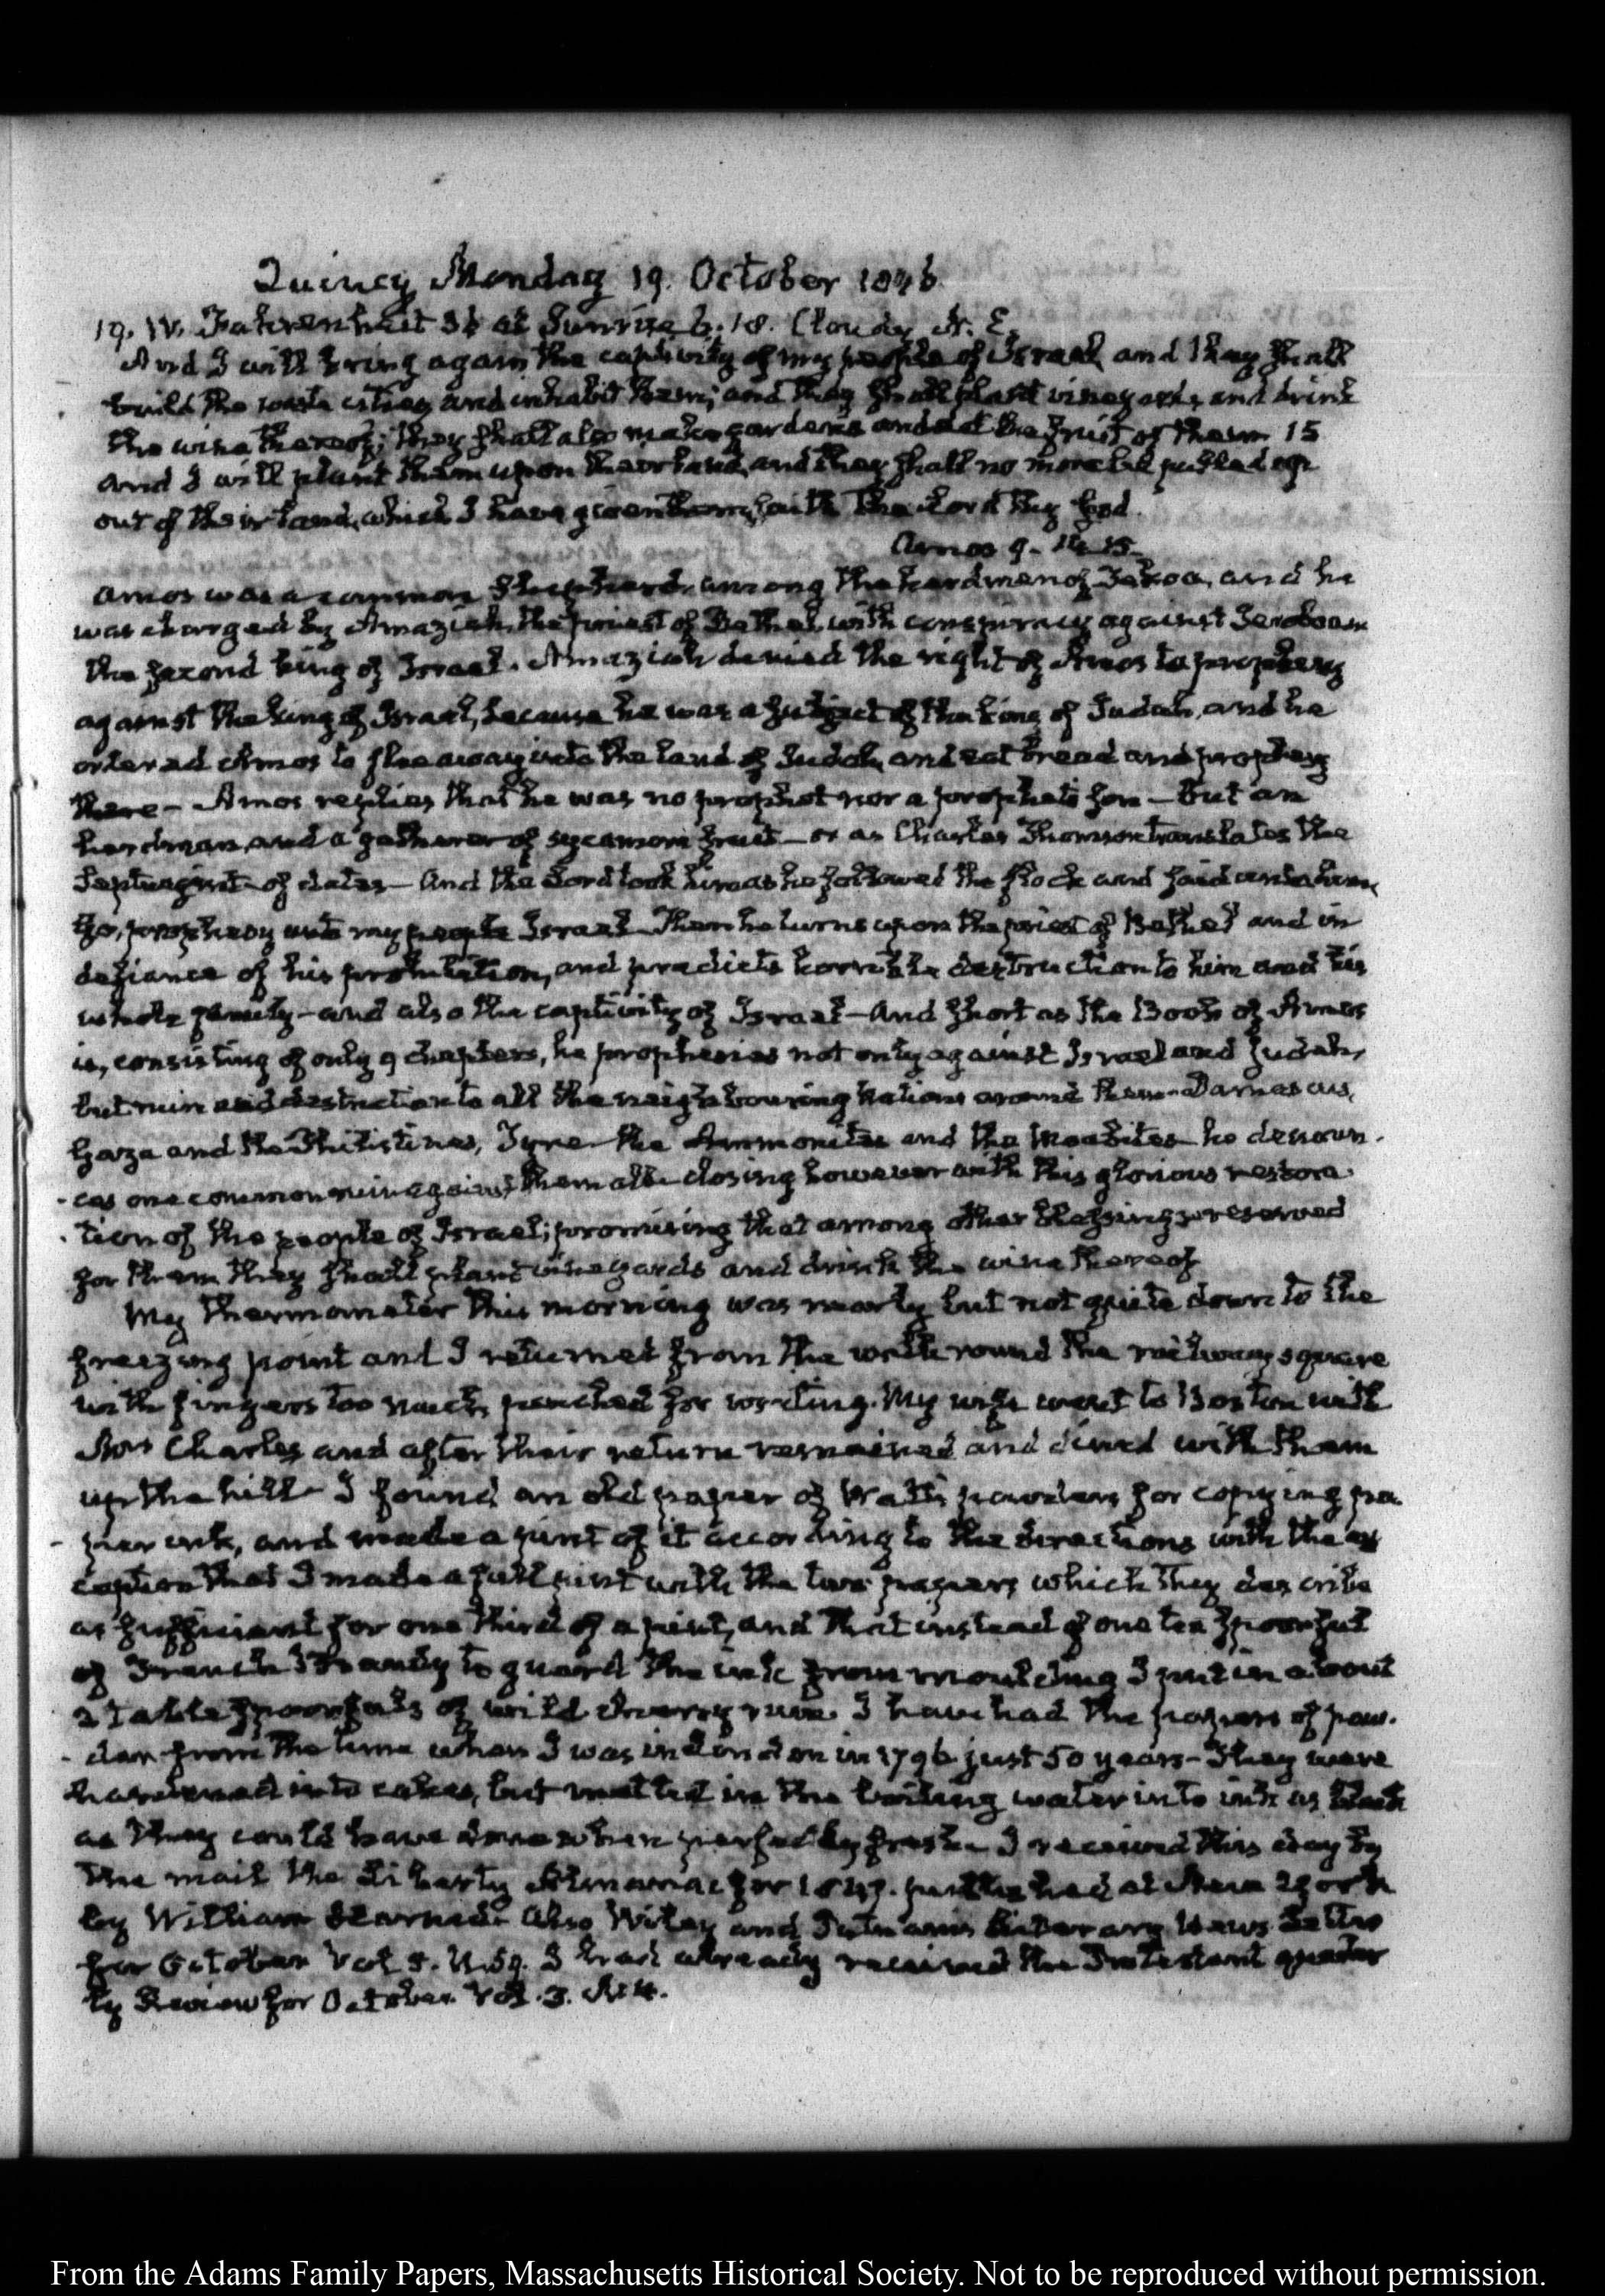 Quincy Monday 19. October 1846
19. IV. Fahrenheit 36 at Sunrise 6.18. Cloudy N. E.
And I will bring again the captivity of my people of Israel, and they shall
build the waste cities and inhabit them; and they shall plant vineyards, and drink
the wine thereof; they shall also make gardens and eat the fruit of them 15
and I will plant them upon their land, and they shall no more be pulled up
out of their land, which I have given them, saith the Lord thy God.
Amos 9. 14. 15.
Amos was a common Shepherd, among the herdmen of Tekoa, and he
was charged by Amaziah, the priest of Bethel, with conspiracy against Jeroboam
the second king of Israel. Amaziah denied the right of Amos to prophesy
against the king of Israel, because he was a subject of the king of Judah, and he
ordered Amos to flee away into the land of Judah, and eat bread and prophesy
there— Amos replies that he was no prophet nor a prophet's son— but an
herdman, and a gatherer of sycamore fruit— or as Charles Thomson translates the
Septuagint of dates— And the Lord took him as he followed the flock and said unto him,
Go, prophesy unto my people Israel. Then he turns upon the priest of Bethel and in
defiance of his prohibition, and predicts horrible destruction to him and his
whole family— and also the captivity of Israel— And short as the Book of Amos
is, consisting of only 9 chapters, he prophesies not only against Israel and Judah,
but ruin and destruction to all the neighbouring Nations around them— Damascus,
Gaza and the Philistines, Tyre the Ammonites and the Moabites he denoun-
-ces one common ruin against them all— closing however with this glorious restora-
-tion of the people of Israel; promising that among other blessings reserved
for them they shall plant vineyards and drink the wine thereof
My Thermometer this morning was nearly but not quite down to the
freezing point and I returned from the walk round the railway square
with fingers too much pinched for writing. My wife went to Boston with
Mrs Charles and after their return remained and dined with them
up the hill— I found an old paper of Watt's powders for copying pa-
-per ink, and made a pint of it according to the directions with the ex
ception that I made a full pint with the two papers which they describe
as sufficient for one third of a pint, and that instead of one tea spoonful
of French Brandy to guard the ink from moulding I put in about
2 table spoonfuls of wild cherry rum. I have had the papers of pow-
-der from the time when I was in London in 1796 just 50 years— They were
hardened into cakes, but melted in the boiling water into ink as black
as they could have done when perfectly fresh— I received this day by
the mail the Liberty Almanac for 1847. published at New York
by William Harned. Also Wiley and Putnam's Literary News Letter
for October Vol 5. N. 59. I had already received the Protestant quarter
ly Review for October Vol. 3. N. 4.
From the Adams Family Papers, Massachusetts Historical Society. Not to be reproduced without permission.